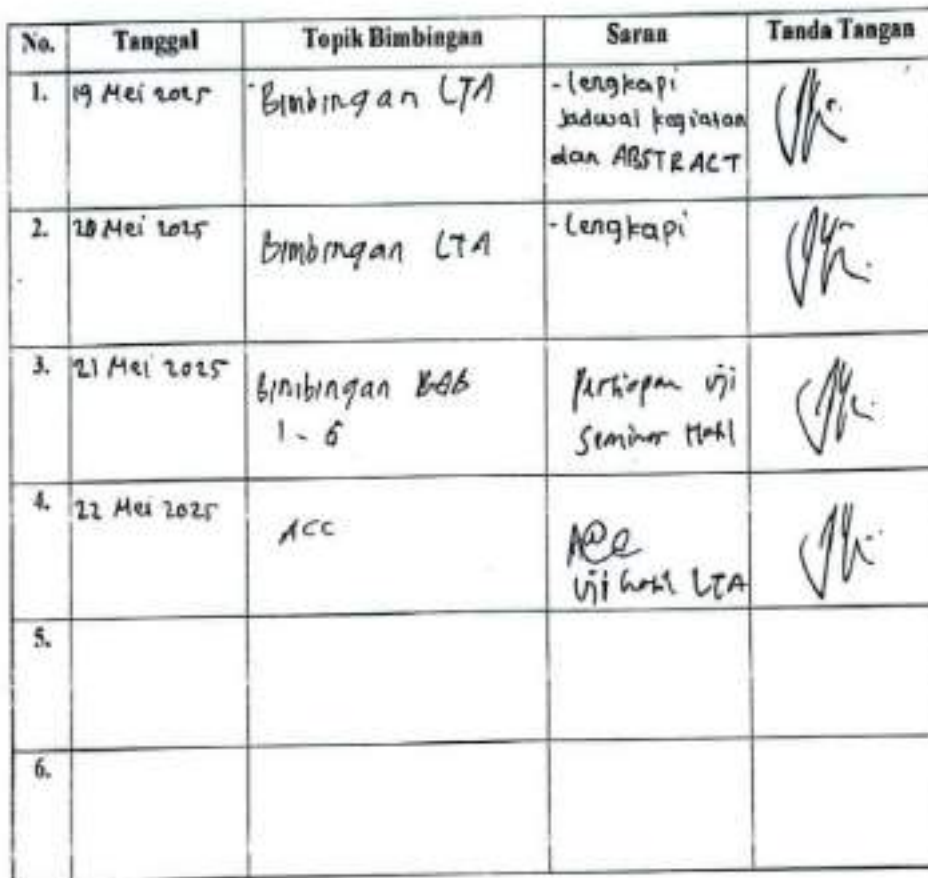 No. Tanggal Topik Bimbingan Saran Tanda Tangan
1. 19 Mei 2025 Bimbingan LTA - lengkapi
Jadwal kegiatan
dan ABSTRACT
2. 20 Mei 2025 Bimbingan LTA - Lengkapi
3. 21 Mei 2025 Bimbingan BAB Persiapan uji
1 - 6 Seminar Hasil
4. 22 Mei 2025 ACC ACC
Uji hasil LTA
5.
6.